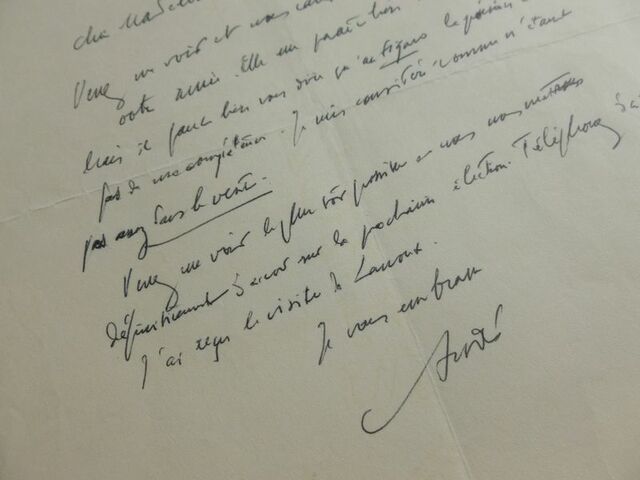 Venez me voir et nous
votre amie. Elle me paraît bien
Mais il faut bien vous dire qu'au Figaro le
pas de ma compétence. Je suis considéré comme n'étant
pas assez dans le vent.
Venez me voir le plus tôt possible et nous nous mettrons
définitivement d'accord sur la prochaine élection. Téléphonez
J'ai reçu la visite de Lanoux.
Je vous embrasse
André